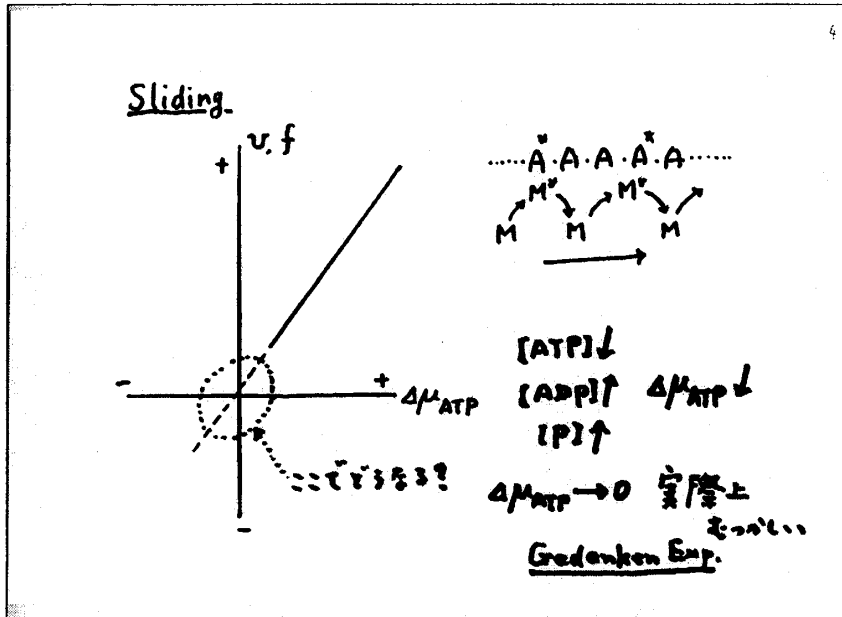 4
Sliding
v, f
+
- + ΔμATP
-
ここでどうなる?
‥‥‥A*·A·A·A*·A‥‥‥
M* M*
M M M
[ATP]↓
[ADP]↑ ΔμATP↓
[P]↑
ΔμATP→0 実際上
むつかしい
Gedanken Exp.